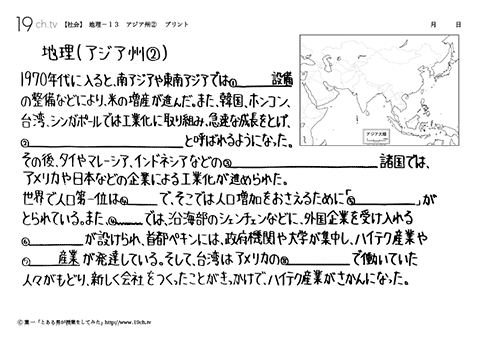 19 ch.tv 【社会】 地理－13 アジア州② プリント 月 日
地理(アジア州②)
1970年代に入ると、南アジアや東南アジアでは①________設備
の整備などにより、米の増産が進んだ。また、韓国、ホンコン、
台湾、シンガポールでは工業化に取り組み、急速な成長をとげ、
②________________と呼ばれるようになった。
その後、タイやマレーシア、インドネシアなどの③________________諸国では、
アメリカや日本などの企業による工業化が進められた。
世界で人口第一位は④______で、そこでは人口増加をおさえるために「⑤________」が
とられている。また、④______では、沿海部のシェンチェンなどに、外国企業を受け入れる
⑥________が設けられ、首都ペキンには、政府機関や大学が集中し、ハイテク産業や
⑦______産業が発達している。そして、台湾はアメリカの⑧____________で働いていた
人々がもどり、新しく会社をつくったことがきっかけで、ハイテク産業がさかんになった。
アジア大陸
© 葉一「とある男が授業をしてみた」http://www.19ch.tv